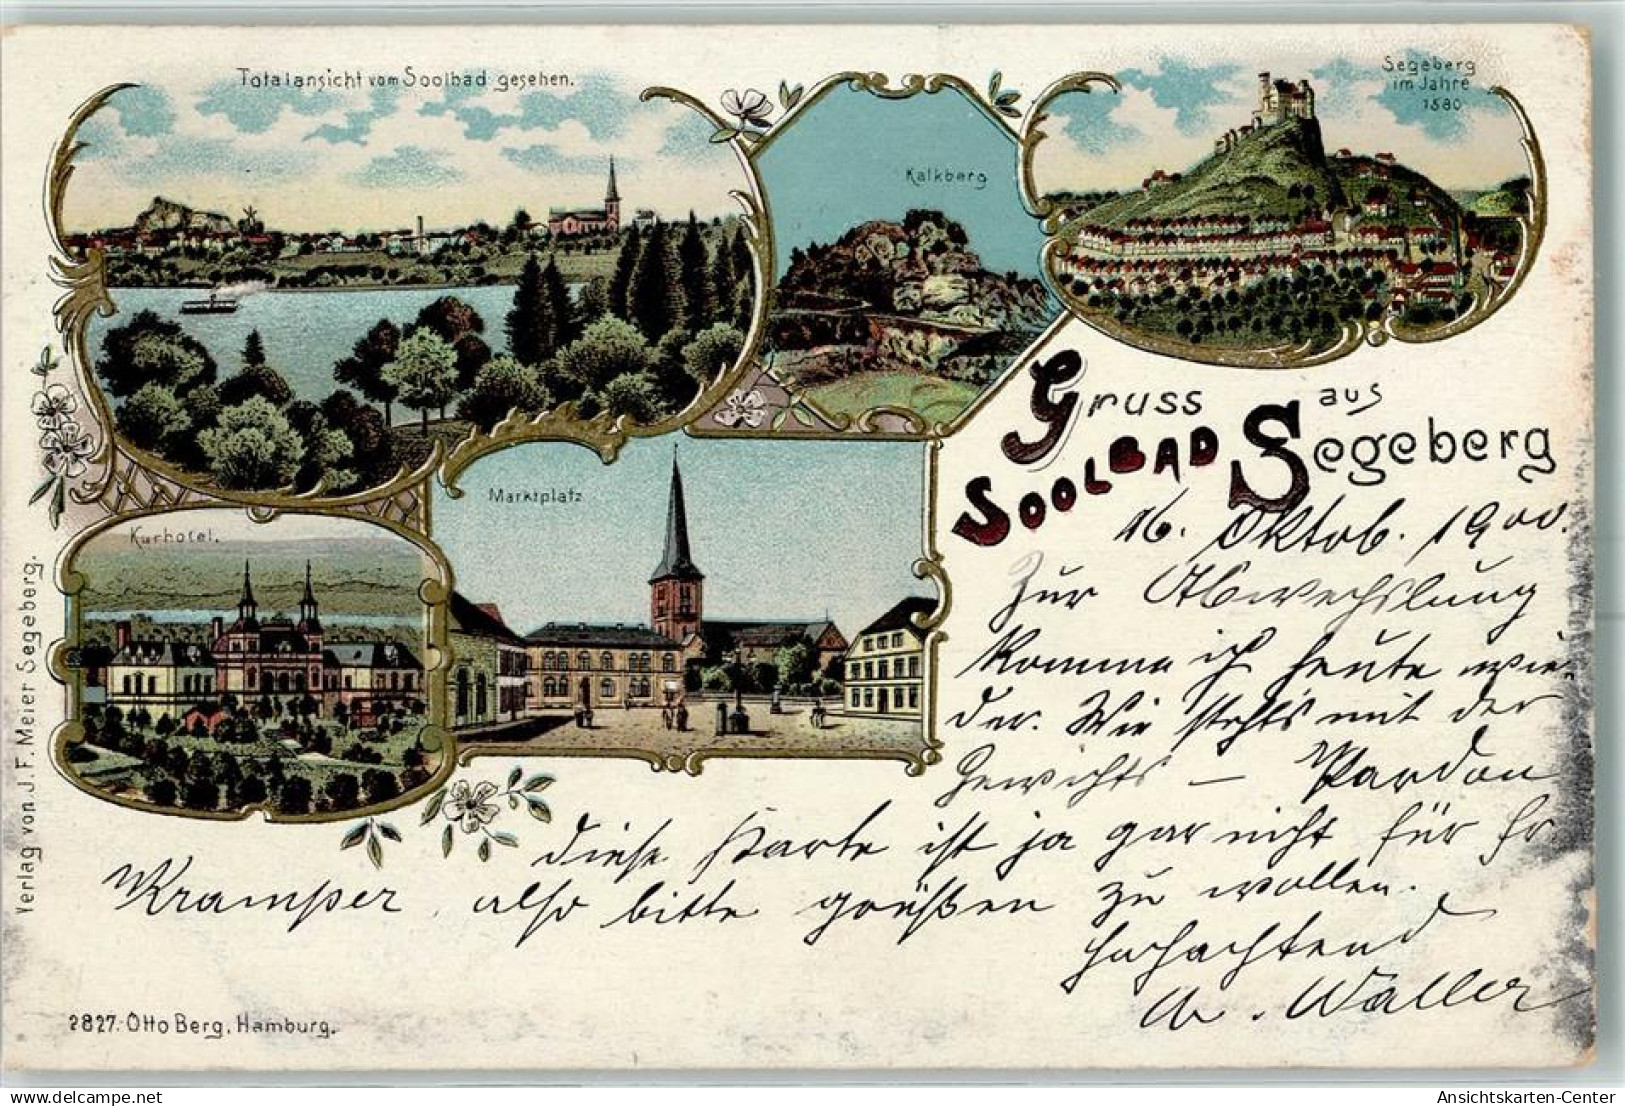 Totalansicht vom Soolbad gesehen.
Kalkberg
Segeberg
im Jahre
1580
Gruss aus
Soolbad Segeberg
Marktplatz
Kurhotel.
16. Oktob. 1900.
Zur Abwechslung
komme ich heute wie-
der. Wie stehts mit der
Gewichts — Pardon
diese Karte ist ja gar nicht für Hr.
Kramper, also bitte grüßen zu wollen.
Hochachtend
W. Waller
Verlag von J. F. Meier Segeberg.
2827. Otto Berg, Hamburg.
Ansichtskarten-Center.com
Ansichtskarten-Center